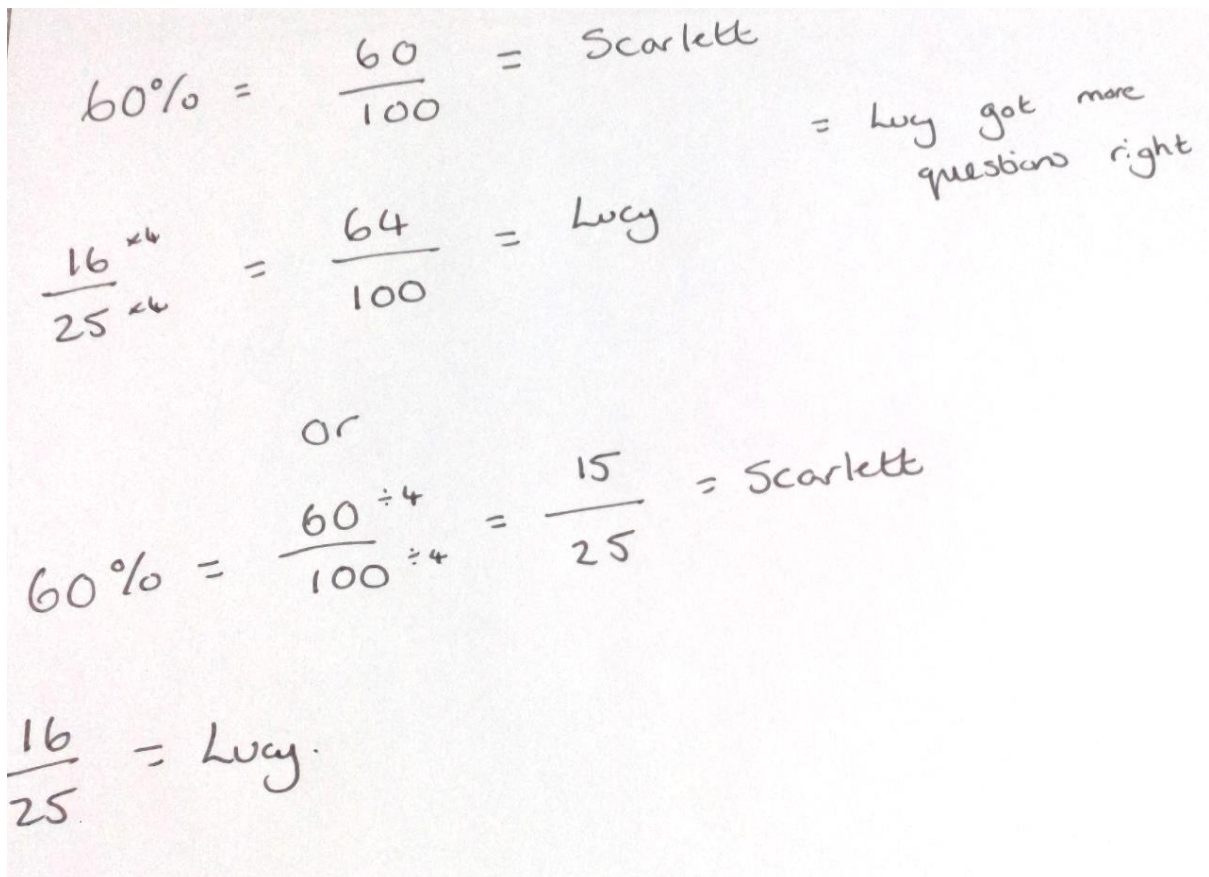 60% = 60/100 = Scarlett
= Lucy got more
questions right
16 ×4/25 ×4 = 64/100 = Lucy
or
60% = 60 ÷4/100 ÷4 = 15/25 = Scarlett
16/25 = Lucy.